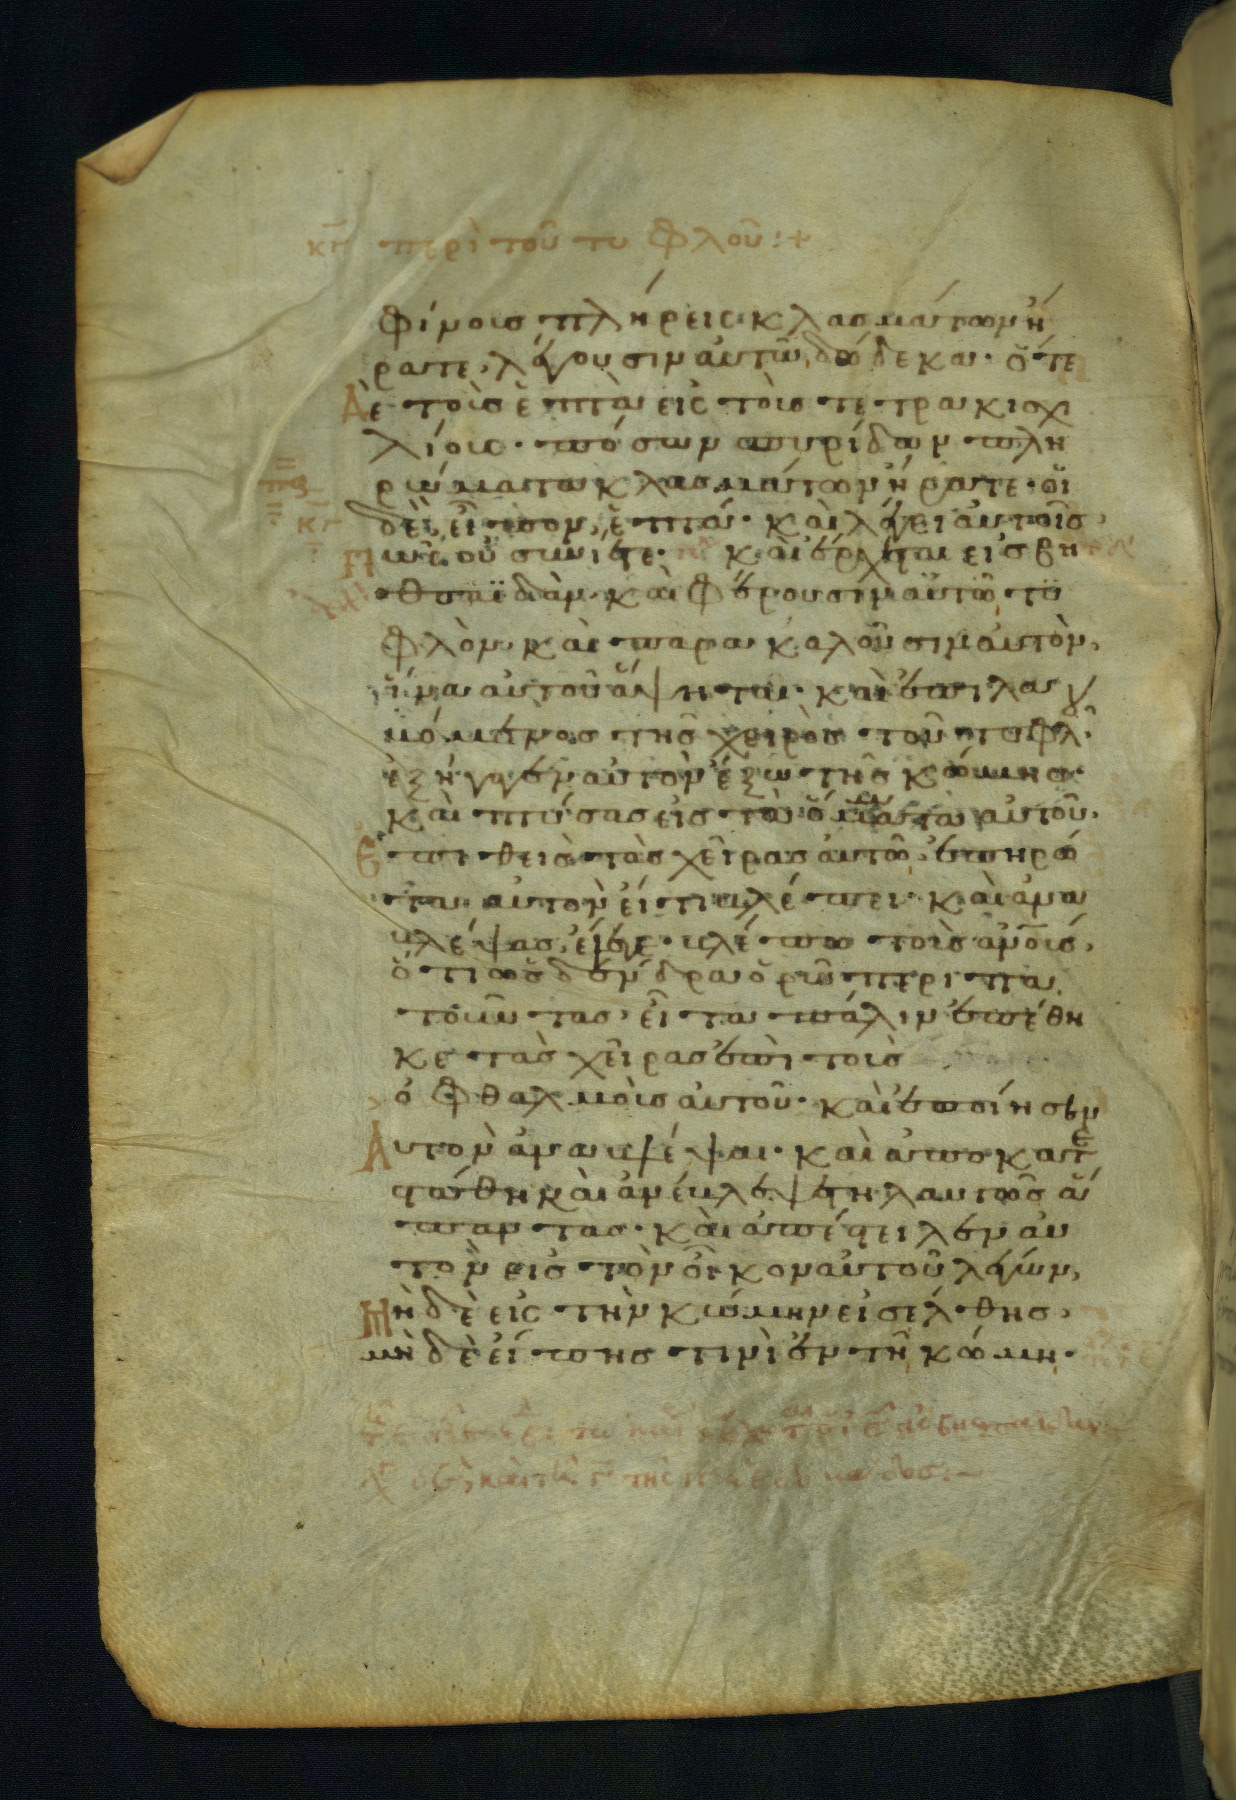 κγ περὶ τοῦ τυφλοῦ:+
φίνους πλήρεις κλασμάτων ἤ
ρατε· λέγουσιν αὐτῶ, δώδεκα· ὅτε
Δὲ τοὺς ἑπτὰ εἰς τοὺς τετρακισχι
λίους· πόσων σπυρίδων πλη
ρώματα κλασμάτων ἤρατε· οἱ
δὲ εἶπον, ἑπτά· καὶ λέγει αὐτοῖς,
κγ
Πῶς οὐ συνίετε· καὶ ἔρχεται εἰς βη
θσαϊδὰν· καὶ φέρουσιν αὐτῶ τυ
φλὸν· καὶ παρακαλοῦσιν αὐτὸν,
ἵνα αὐτοῦ ἅψηται· καὶ ἐπιλαβ
όμενος τῆς χειρὸς τοῦ τυφλοῦ·
ἐξήγαγεν αὐτὸν ἔξω τῆς κώμης·
καὶ πτύσας εἰς τὰ ὄμματα αὐτοῦ·
Ἐπιθεὶς τὰς χεῖρας αὐτῶ, ἐπηρώ
τα αὐτὸν εἴ τι βλέπει· καὶ ἀνα
βλέψας, ἔλεγε· βλέπω τοὺς ἀνοὺς,
ὅτι ὡς δένδρα ὁρῶ περιπα
τοῦντας· εἶτα πάλιν ἐπέθη
κε τὰς χεῖρας ἐπὶ τοὺς
ὀφθαλμοὺς αὐτοῦ· καὶ ἐποίησεν
Αὐτὸν ἀναβλέψαι· καὶ ἀποκατε
στάθη καὶ ἀνέβλεψε τηλαυγῶς ἅ
παντας· καὶ ἀπέστειλεν αὐ
τὸν εἰς τὸν οἶκον αὐτοῦ λέγων,
Μὴ δὲ εἰς τὴν κώμην εἰσέλθης·
μὴ δὲ εἴπης τινὶ ἐν τῆ κώμη·